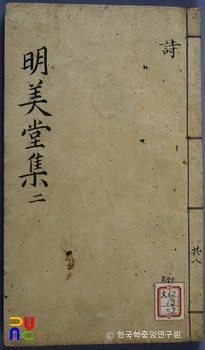 詩
明美堂集 二
共八
© 한국학중앙연구원